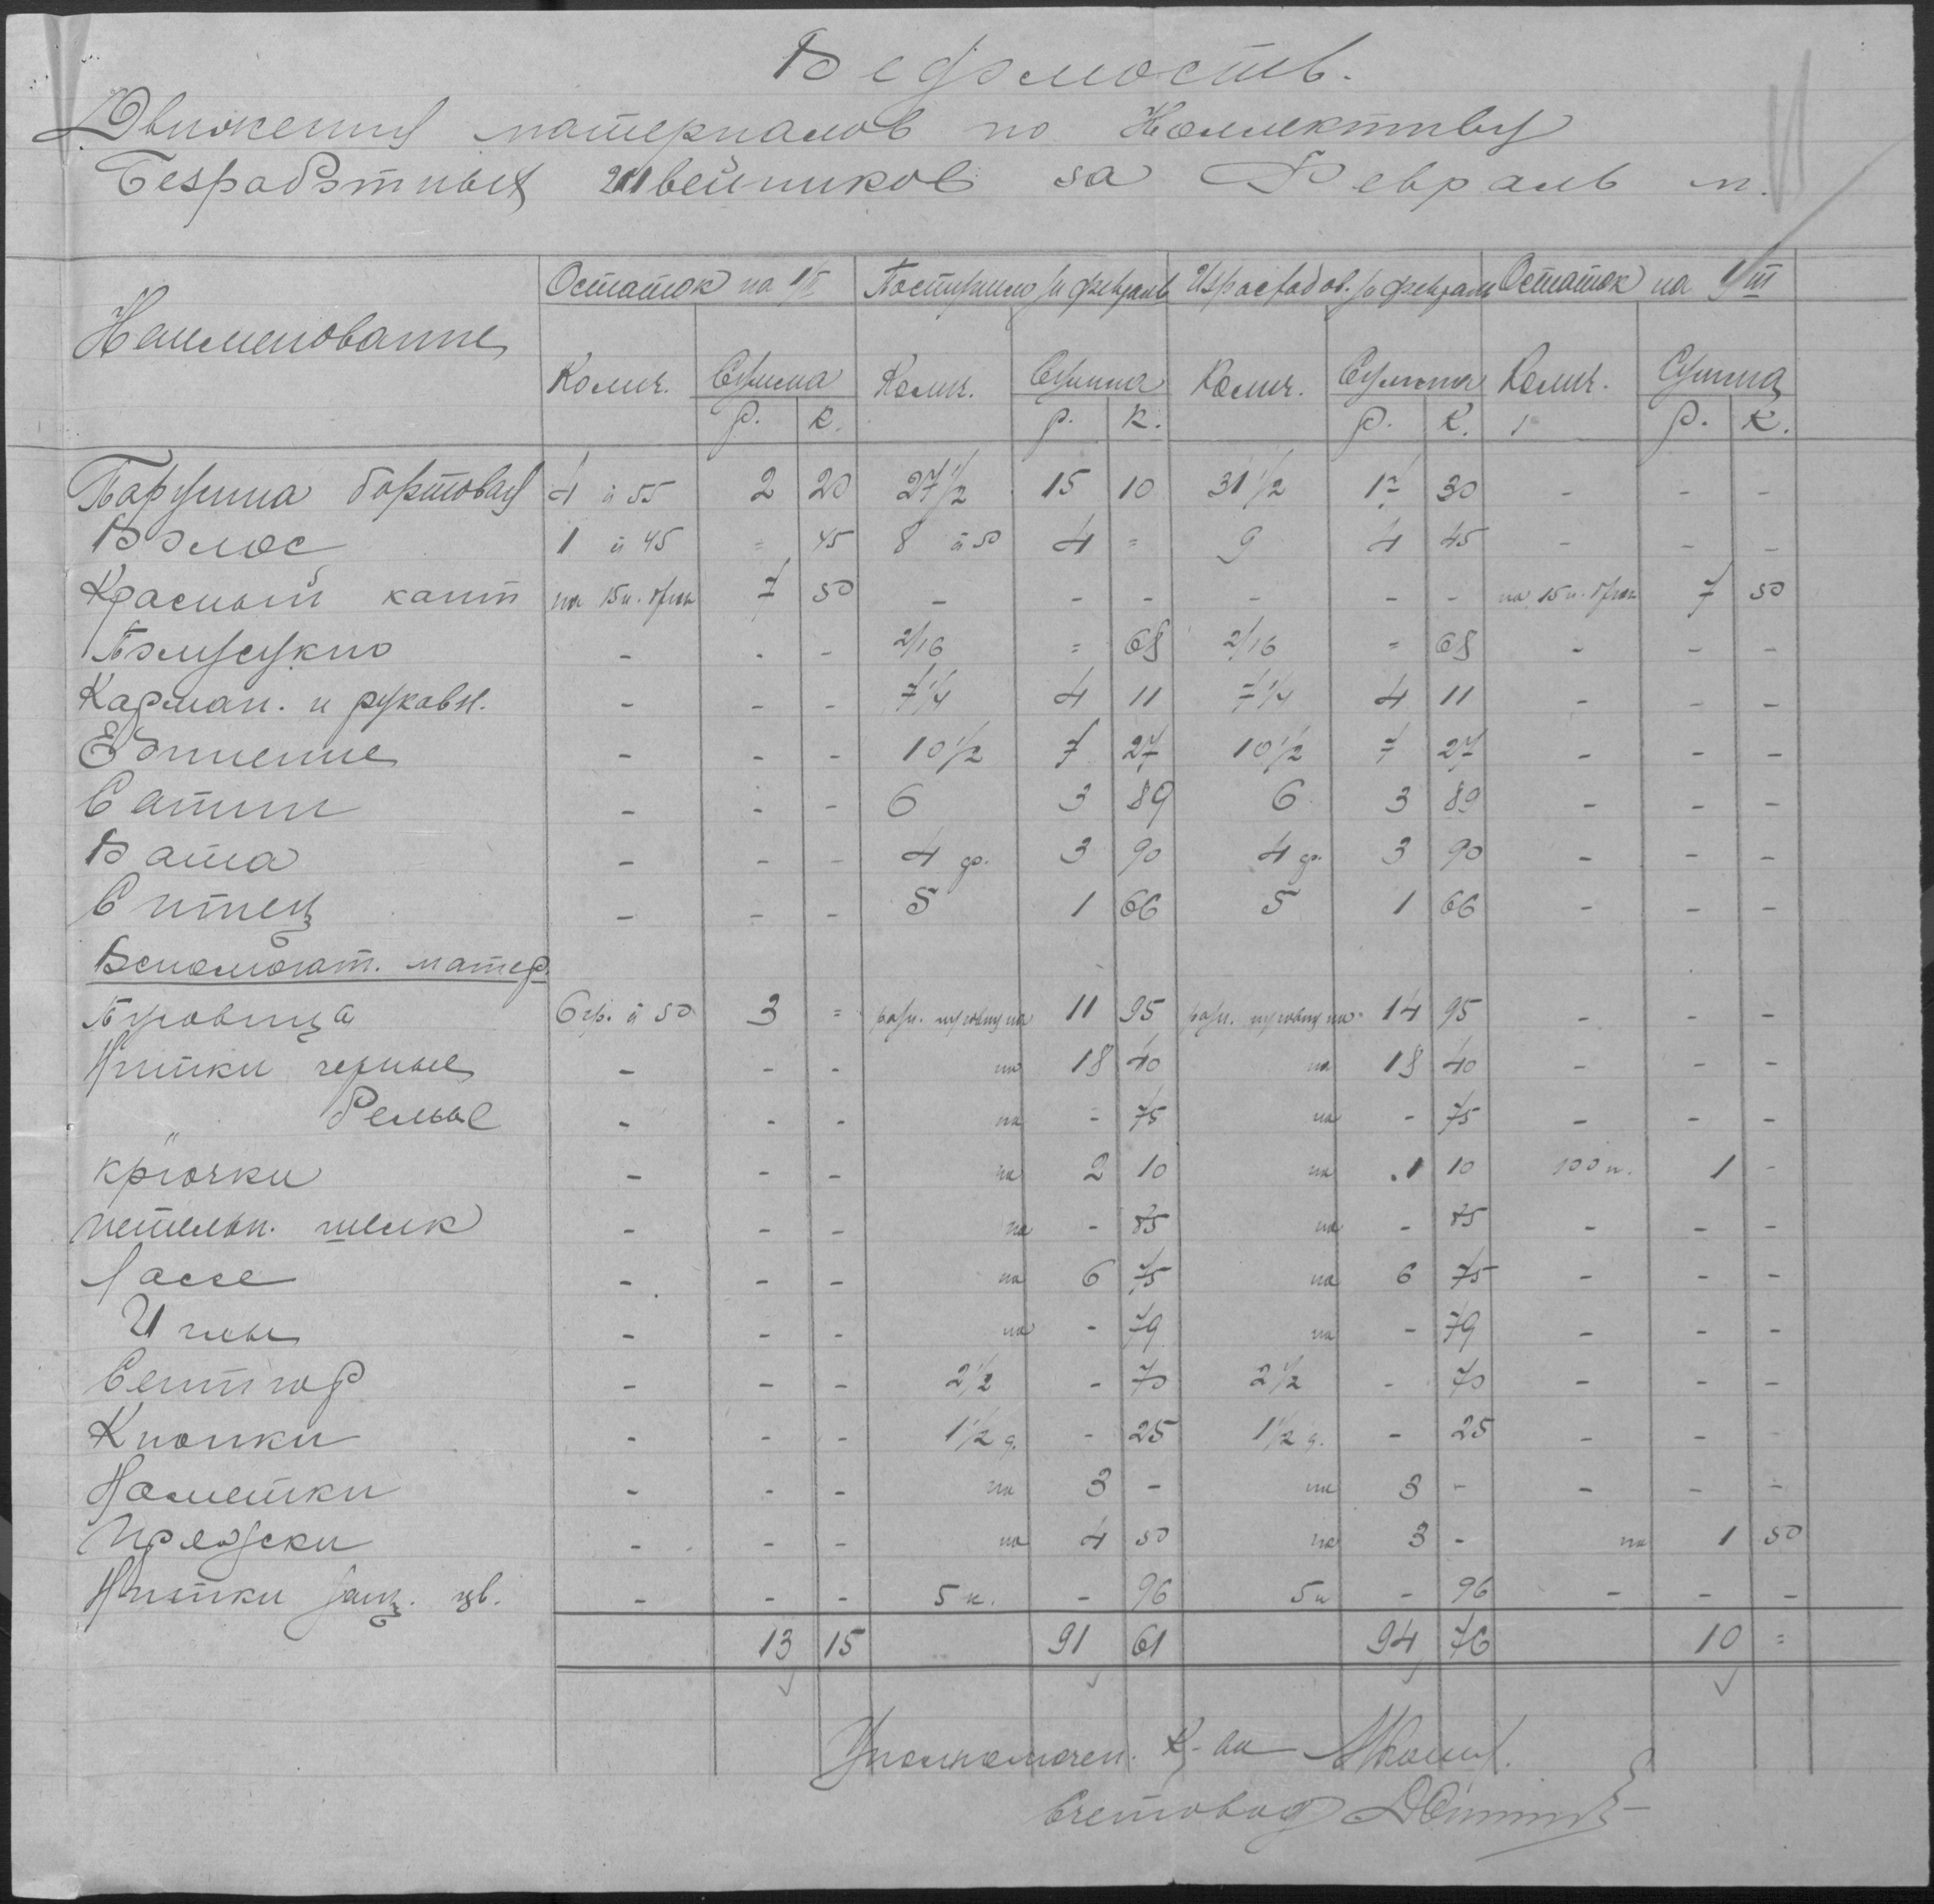 Ведомость.
Движения материалов по Коллективу
Безработных швейников за Февраль м.
Наименование Остаток на 1/II Поступило за февраль Израсходов. за февраль Остаток на 1/III
Колич. Сумма Колич. Сумма Колич. Сумма Колич. Сумма
р. к. р. к. р. к. р. к.
Парусина бортовая 4 à 55 2 20 27 1/2 15 10 31 1/2 17 30 - - -
Волос 1 à 45 = 45 8 à 50 4 = 9 4 45 - - -
Красный кант на 15 и. брюк 7 50 - - - - - - на 15 и. брюк 7 50
Полусукно - - - 2/16 = 68 2/16 = 68 - - -
Карман. и рукавн. - - - 7 1/4 4 11 7 1/4 4 11 - - -
- - - 10 1/2 7 27 10 1/2 7 27 - - -
Сатин - - - 6 3 89 6 3 89 - - -
Вата - - - 4 ф. 3 90 4 ф. 3 90 - - -
Ситец - - - 5 1 66 5 1 66 - - -
Вспомогат. матер.
Пуговица 6 гр. à 50 3 = разн. пуговиц на 11 95 разн. пуговиц на 14 95 - - -
Нитки черные - - - на 18 40 на 18 40 - - -
" белые - - - на - 75 на - 75 - - -
крючки - - - на 2 10 на 1 10 100 п. 1 -
петельн. шелк - - - на - 85 на - 85 - - -
Лассе - - - на 6 75 на 6 75 - - -
Иглы - - - на - 79 на - 79 - - -
- - - 2 1/2 - 70 2 1/2 - 70 - - -
Кнопки - - - 1 1/2 д. - 25 1 1/2 д. - 25 - - -
Наметки - - - на 3 - на 3 - - - -
Пряжки - - - на 4 50 на 3 - на 1 50
Нитки защ. цв. - - - 5 к. - 96 5 к - 96 - - -
13 15 91 61 94 76 10 =
Уполномочен. К-ва
Счетовод